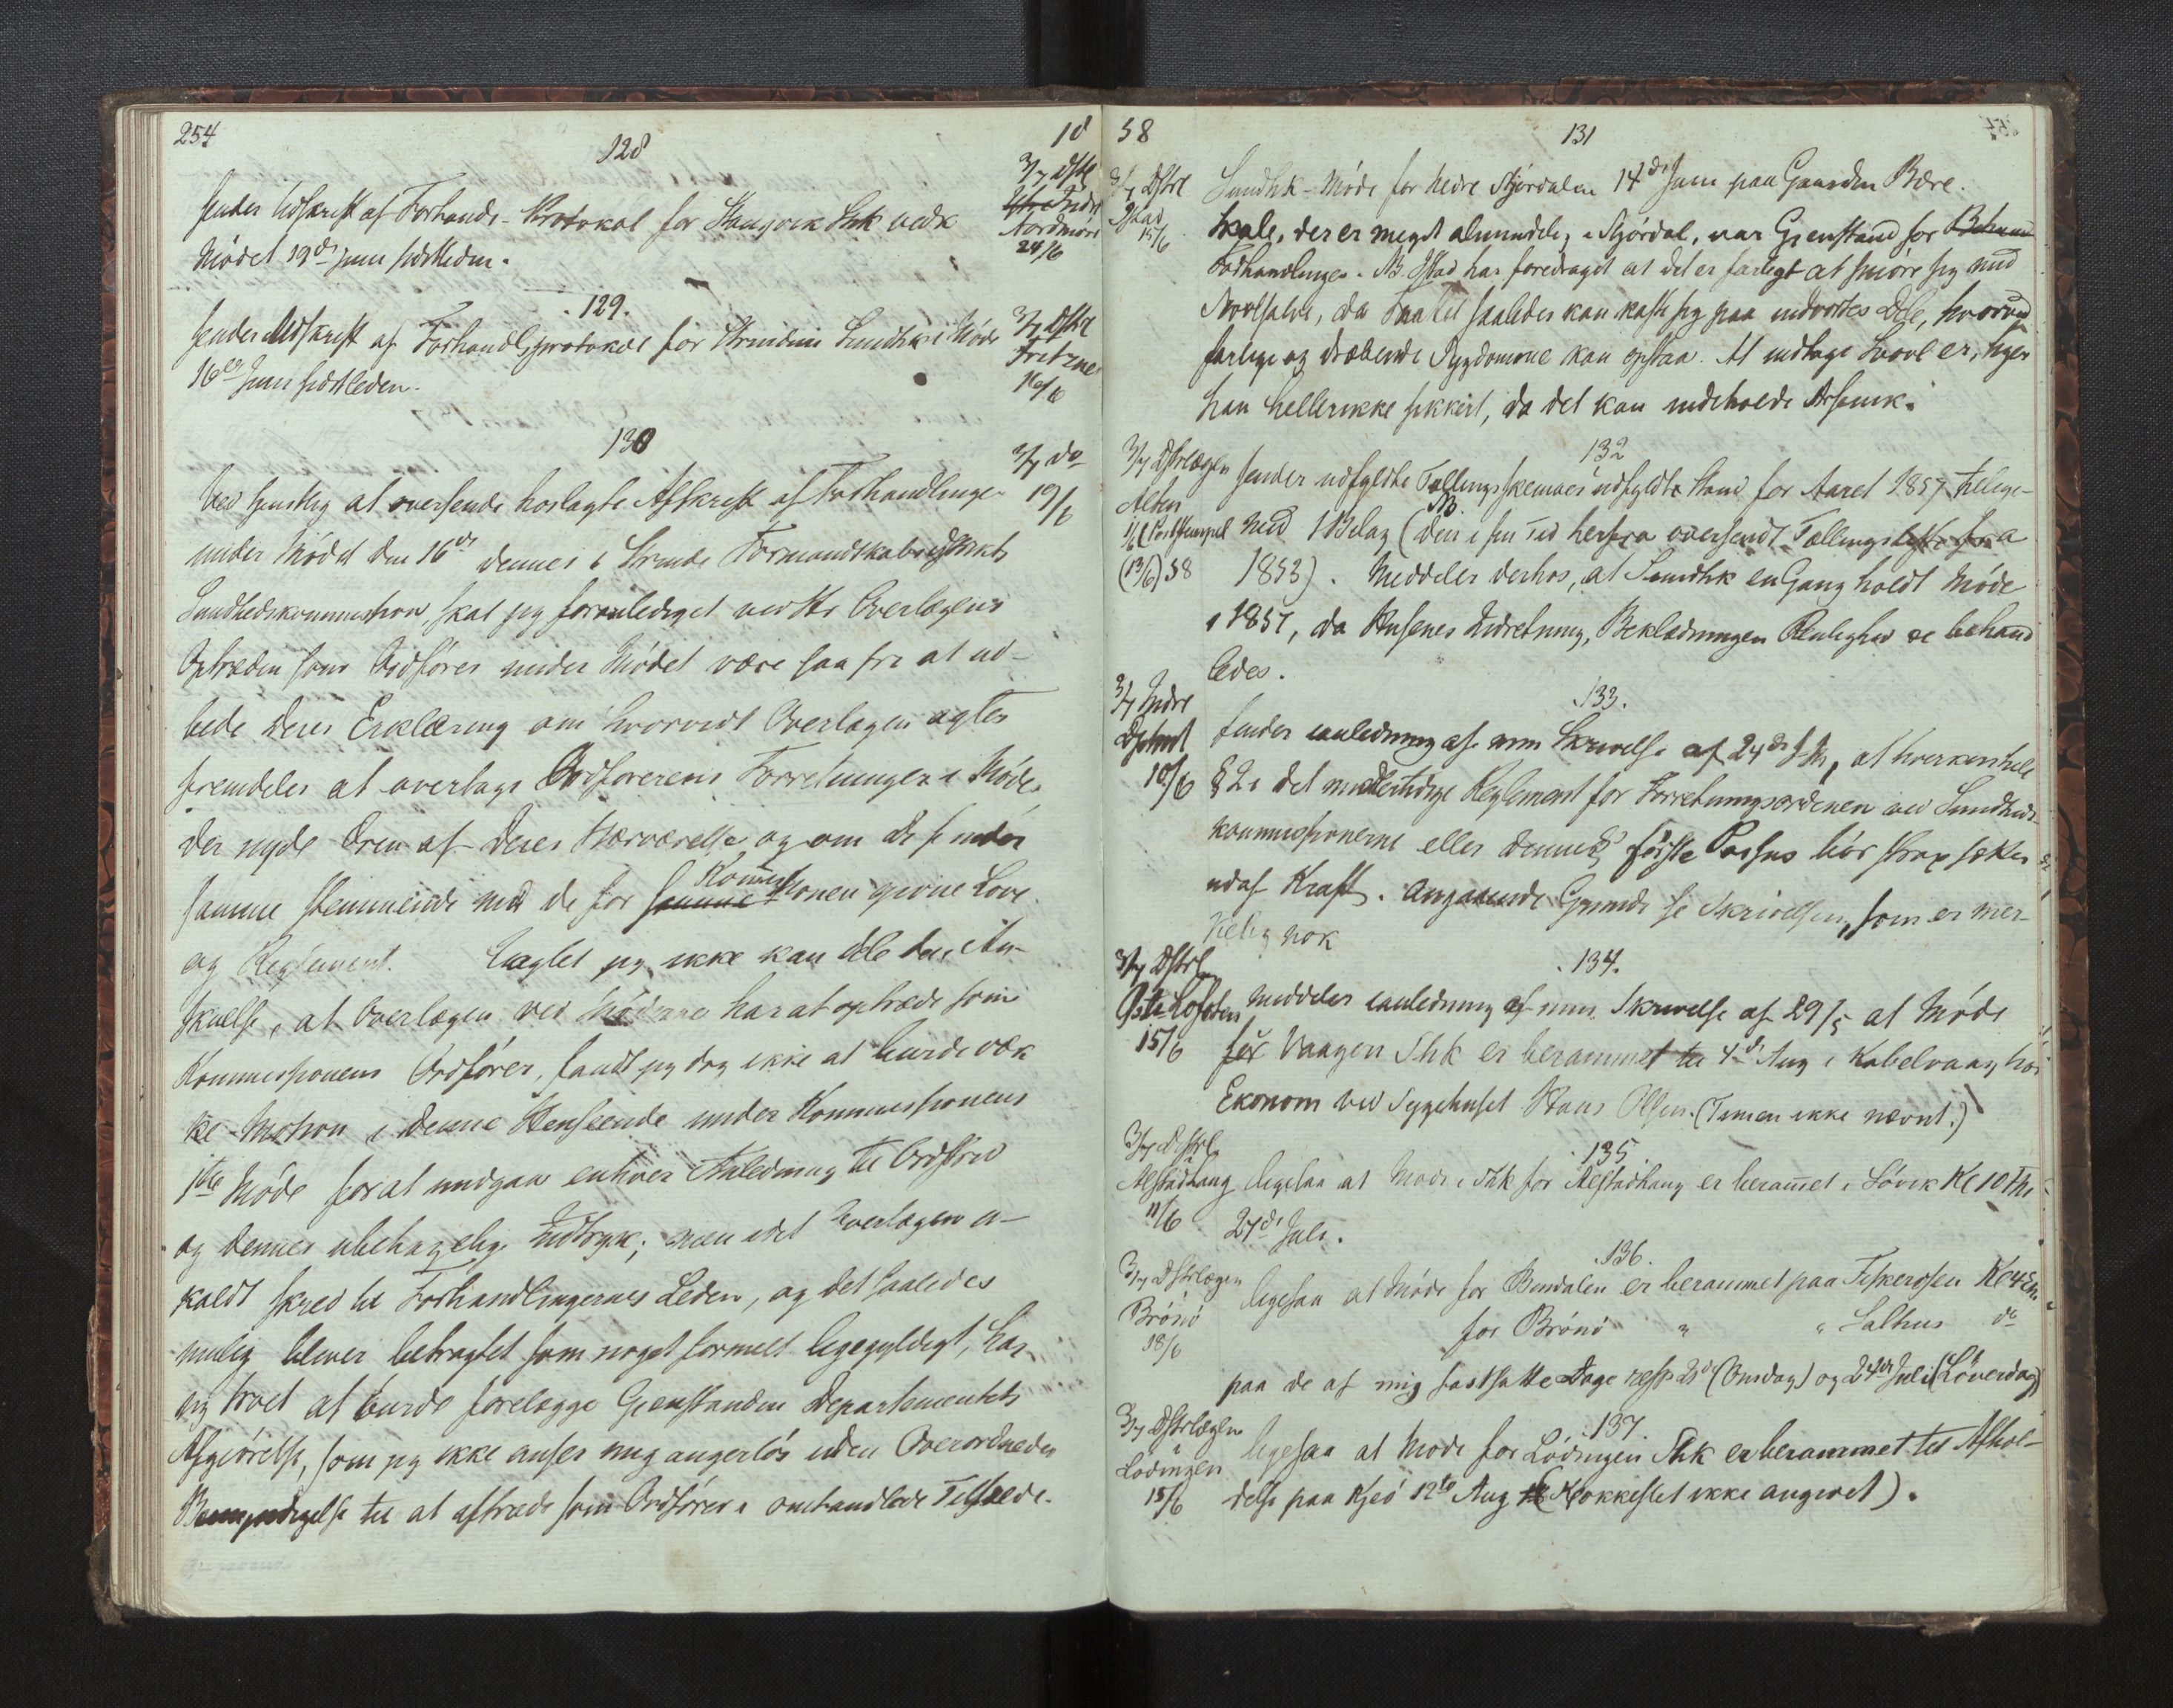 254
18
128
3/7 Dstl
Indr
Nordmør
24/6
sender Udskrift af Forhandl-Protokol for Stangvik Shk vedk
Mødet 19de Juni sidstleden.
129.
3/7 Dstrl
Fritzne
16/6
sender Udskrift af Forhandlsprotokol for Strindens Sundhk i Møde
16de Juni sidstleden.
130
3/7 do
19/6
Ved hjemtlig at oversende hoslagte Afskrift af Forhandlinger
under Mødet den 16de dennes i Strinde Formandskabsdistrikts
Sundhedskommission, skal jeg foranlediget ved Hr Overlægens
Optræden som Ordfører under Mødet være saa fri at ud-
bede Deres Erklæring om hvorvidt Overlægen agter
fremdeles at overtage Ordførerens Forretninger i Møder,
der nyde Æren af Deres Nærværelse og om De finder
samme stemmende med de for Kommissionen givne Love
og Reglement. Eaglet jeg ikke kan dele den An-
skuelse, at Overlægen ved Møderne har at optræde som
Kommissionens Ordfører, fandt jeg dog ikke at burde væk
ke Motion i denne Henseende under Kommissionens
1ste Møde for at undgaa enhver Anledning til Ordstrid
og dennes ubehagelige Indtryk; men idet Overlægen u-
kaldt skred til Forhandlingernes Leden, og det saaledes
mulig bliver betragtet som noget formelt ligegyldigt, har
jeg troet at burde forelægge Gjenstanden Departementets
Afgiørelse, som jeg ikke anser mig angerløs uden Overordnedes
Bemyndigelse til at aftræde som Ordfører i omhandlede Tilfælde.
58
131
3/7 Dstrl
Ystad
15/6
Sundhk-Møde for nedre Stjørdalen 14de Juni paa Gaarden Bære.
Skab, der er meget almindelig i Stjørdal, var Gjenstand for
Forhandlinger. NB Ystad har foredraget at det er farligt at smøre sig med
Svovlsalve, da Fnatet saaledes kan kaste sig paa indvortes Dele, hvorved
farlige og dræbende Sygdomme kan opstaa. At indtage Svovl er, siger
han hellerikke sikkert, da det kan indeholde Arsenik.
132
3/7 Dstrlægen
Alten
1/6 (Poststempel
(13/6) 58
sender udfyldte Tællingsskemaer udfyldte Stand for Aaret 1857 tillige-
NB
med 1 Bilag (den i sin Tid herfra oversendt Tællingsliste fra
1853). Meddeler derhos, at Sundhk en Gang holdt Møde
i 1857, da Husenes Indretning, Beklædningen Renlighed &c behand
ledes.
133.
3/7 Indre
Dptmt
10/6
sender i anledning af min Skrivelse af 24de f M, at hverken hele
§ 2 i det midlertidige Reglement for Forretningsordenen ved Sundheds-
kommissionerne eller dennes første Passus bør strax sættes
ud af Kraft. Angaaende Grunde se Skrivelsen, som er mer-
kelig nok
134.
3/7 Dstrl
Øste Lofoten
15/6
meddeler i anledning af min Skrivelse af 29/5 at Møde
for Vaagen Shk er berammet til 4de Aug i Kabelvaag hos
Ekonom ved Sygehuset Hans Olsen. (Timen ikke nævnt.)
135.
3/7 Dstrl
Alstadhaug
11/6
ligesaa at Møde i Shk for Alstadhaug er beramet i Søvik Kl 10 Fm
27de Juli.
136.
3/7 Dstrlægen
Brønø
18/6
ligesaa at Møde for Bindalen er berammet paa Fiskerosen Kl 4 Em
for Brønø " " Salhus do
paa de af mig fastsatte Dage resp (Onsdag) og 24de Juli (Løverdag)
137.
3/7 Dstrlægen
i
Lødingen
15/6
ligesaa at Møde for Lødingen Shk er berammet til Afhol-
delse paa Kjeø 12te Aug (Klokkeslet ikke angivet).